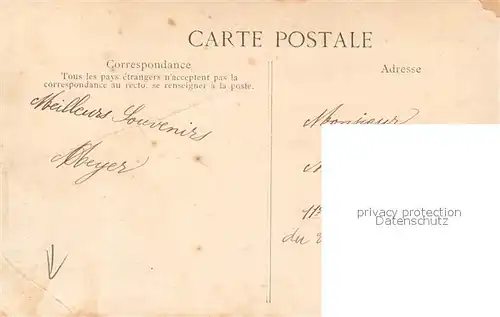 CARTE POSTALE
Correspondance
Tous les pays étrangers n'acceptent pas la
correspondance au recto: se renseigner à la poste.
Adresse
Meilleurs Souvenirs
Meyer
Monsieur
M
11e
du 2
privacy protection
Datenschutz